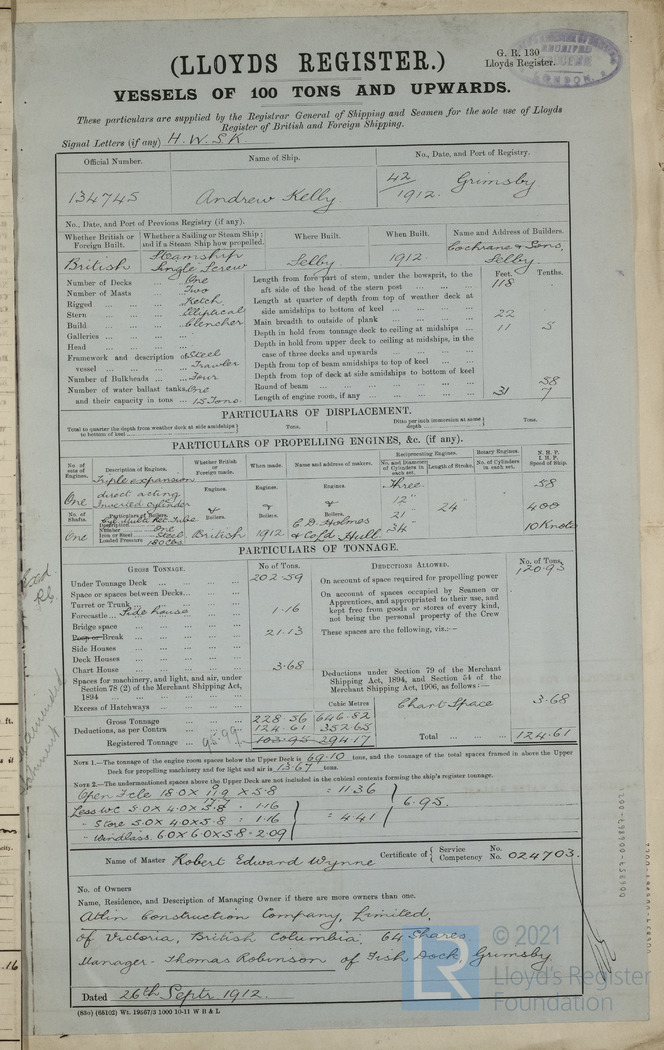 G. R. 130
Lloyds Register.
(LLOYDS REGISTER.)
VESSELS OF 100 TONS AND UPWARDS.
These particulars are supplied by the Registrar General of Shipping and Seamen for the sole use of Lloyds
Register of British and Foreign Shipping.
Signal Letters (if any) H.W.S.K.
Official Number. Name of Ship. No., Date, and Port of Registry.
134745 Andrew Kelly 42/1912. Grimsby
No., Date, and Port of Previous Registry (if any).
Whether British or Foreign Built. Whether a Sailing or Steam Ship; and if a Steam Ship how propelled. Where Built. When Built. Name and Address of Builders.
British Steamship Single Screw Selby 1912. Cochrane & Sons, Selby.
Number of Decks ... One
Number of Masts ... Two
Rigged ... Ketch
Stern ... Elliptical
Build ... Clencher
Galleries ...
Head ...
Framework and description of vessel ... Steel Trawler
Number of Bulkheads ... Four
Number of water ballast tanks, and their capacity in tons ... One 15 Tons.
Feet. Tenths.
Length from fore part of stem, under the bowsprit, to the aft side of the head of the stern post ... 118
Length at quarter of depth from top of weather deck at side amidships to bottom of keel ...
Main breadth to outside of plank ... 22
Depth in hold from tonnage deck to ceiling at midships ... 11 5
Depth in hold from upper deck to ceiling at midships, in the case of three decks and upwards ...
Depth from top of beam amidships to top of keel ...
Depth from top of deck at side amidships to bottom of keel
Round of beam ... 58
Length of engine room, if any ... 31 7
PARTICULARS OF DISPLACEMENT.
Total to quarter the depth from weather deck at side amidships to bottom of keel ... Tons. Ditto per inch immersion at same depth ... Tons.
PARTICULARS OF PROPELLING ENGINES, &c. (if any).
No. of sets of Engines. Description of Engines. Whether British or Foreign made. When made. Name and address of makers. Reciprocating Engines. Rotary Engines. N. H. P. I. H. P. Speed of Ship.
No. and Diameter of Cylinders in each set. Length of Stroke. No. of Cylinders in each set.
One Triple expansion direct acting Inverted cylinder Engines. Engines. Engines. Three 12" 21 " 34 " 24 58 400 10 Knots
No. of Shafts. Particulars of Boilers. Boilers. Boilers. Boilers.
One Description Number One Iron or Steel Steel Loaded Pressure 180 lbs British 1912 C. D. Holmes & Co Ld Hull
PARTICULARS OF TONNAGE.
GROSS TONNAGE. No. of Tons. DEDUCTIONS ALLOWED. No. of Tons.
Under Tonnage Deck ... 202.59
Space or spaces between Decks...
Turret or Trunk
Forecastle... Side house 1.16
Bridge space
Poop or Break ... 21.13
Side Houses
Deck Houses
Chart House ... 3.68
Spaces for machinery, and light, and air, under Section 78 (2) of the Merchant Shipping Act, 1894
Excess of Hatchways ... Cubic Metres
Gross Tonnage ... 228.56 646.82
Deductions, as per Contra ... 124.61 352.65
Registered Tonnage ... 103.95 294.17
95.99
On account of space required for propelling power 120.93
On account of spaces occupied by Seamen or Apprentices, and appropriated to their use, and kept free from goods or stores of every kind, not being the personal property of the Crew
These spaces are the following, viz.:—
Deductions under Section 79 of the Merchant Shipping Act, 1894, and Section 54 of the Merchant Shipping Act, 1906, as follows:—
Chart Space 3.68
Total ... 124.61
NOTE 1.—The tonnage of the engine room spaces below the Upper Deck is 69.10 tons, and the tonnage of the total spaces framed in above the Upper Deck for propelling machinery and for light and air is 13.67 tons.
NOTE 2.—The undermentioned spaces above the Upper Deck are not included in the cubical contents forming the ship's register tonnage.
Open Fcle 18.0 x x 5.8 = 11.36
Less WC 5.0 x 4.0 x 5.8 = 1.16
" Store 5.0 x 4.0 x 5.8 = 1.16
" Windlass. 6.0 x 6.0 x 5.8 = 2.09
= 4.41
6.95.
Name of Master Robert Edward Wynne Certificate of { Service No. Competency No. 024703.
No. of Owners
Name, Residence, and Description of Managing Owner if there are more owners than one.
Atlin Construction Company, Limited,
of Victoria, British Columbia. 64 Shares.
Manager - Thomas Robinson of Fish Dock, Grimsby.
Dated 26th Septr. 1912.
(88o) (65102) Wt. 19567/3 1000 10-11 W B & L
© 2021
LR Lloyd's Register
Foundation